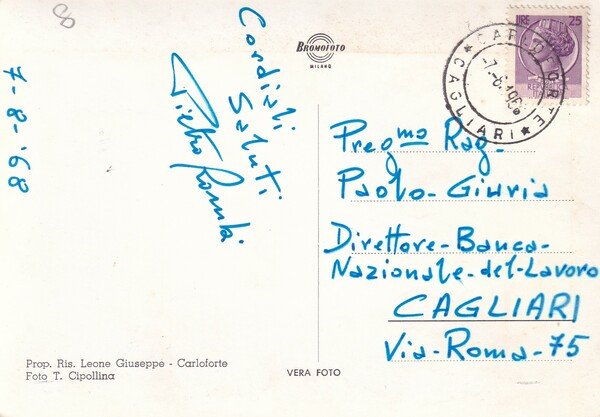 8
BROMOFOTO
MILANO
LIRE 25
CARLOFORTE
CAGLIARI
7-8-'68
Cordiali
Saluti
Pregmo Rag.
Paolo-Giuria
Direttore-Banca-
Nazionale-del-Lavoro
CAGLIARI
Via-Roma-75
Prop. Ris. Leone Giuseppe - Carloforte
Foto T. Cipollina
VERA FOTO